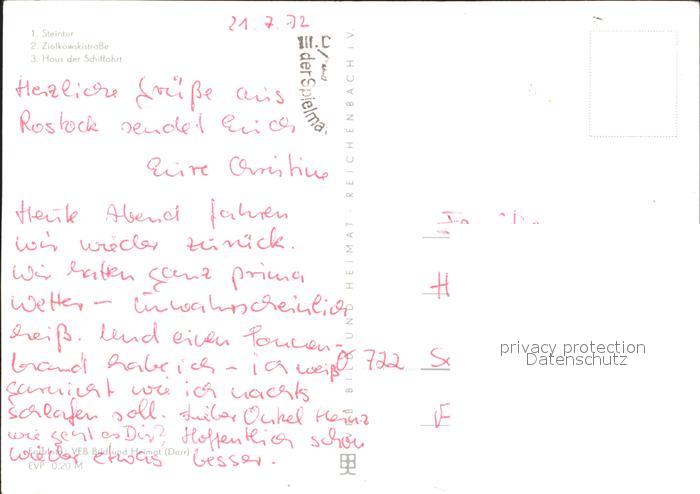 21.7.72
1. Steintor
2. Ziolkowskistraße
3. Haus der Schiffahrt
III. C
der Spielma
Herzliche Grüße aus
Rostock sendet Euch
Eure Christine
Heute Abend fahren
wir wieder zurück.
Wir hatten ganz prima
Wetter – unwahrscheinlich
heiß. Und einen Sonnen-
brand habe ich – ich weiß
garnicht wie ich nachts
schlafen soll. Lieber Onkel Heinz
wie geht es Dir? Hoffentlich schon
wieder etwas besser.
VEB Bild und Heimat (Darr)
EVP 0,20 M
BILD UND HEIMAT REICHENBACH I.V.
H
722
F
privacy protection
Datenschutz